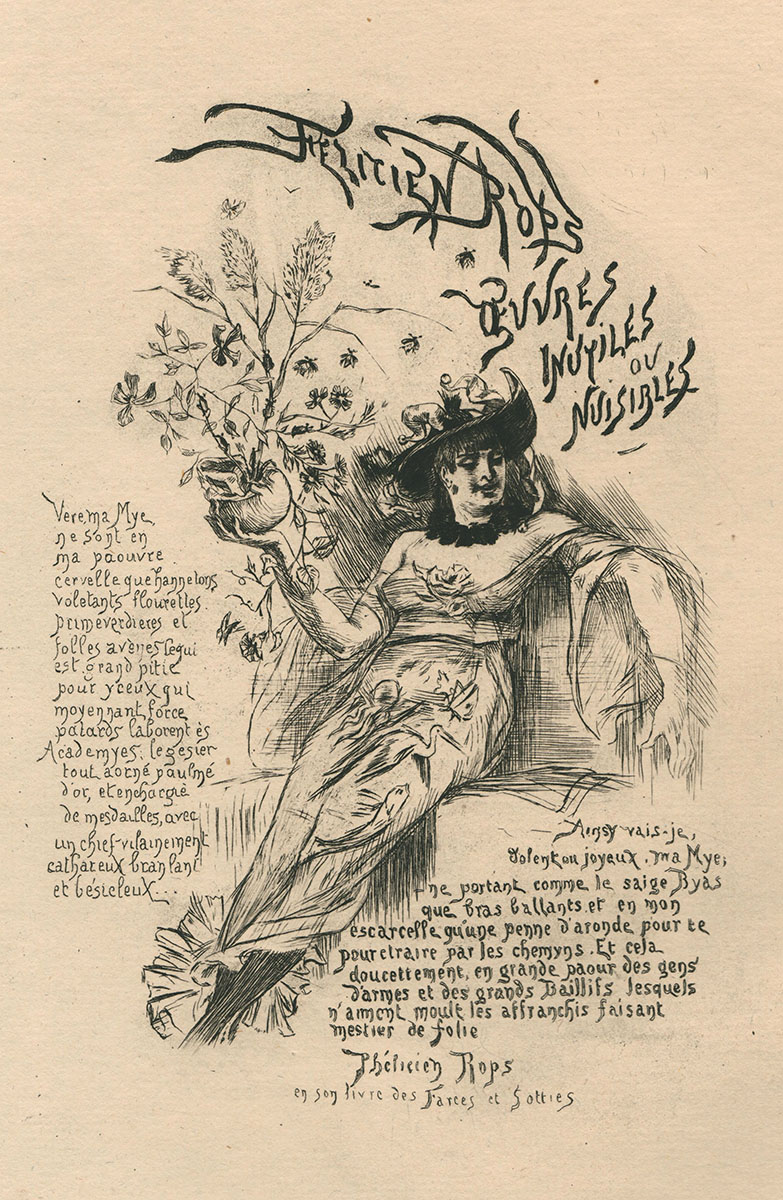 Félicien Rops
Œuvres
inutiles
ou
nuisibles
Vere, ma Mye,
ne sont en
ma paouvre
cervelle que hannetons
voletants flourettes
primeverdieres et
folles avenes lequi
est grand pitié
pour yceux qui
moyennant force
patards laborent ès
Academyes: le gesier
tout aorné paulmé
d'or, et enchargié
de mesdailles, avec
un chief vilainement
cathareux branlant
et bésicleux...
Ainsy vais-je,
dolent ou joyeux, ma Mye,
ne portant comme le saige Byas
que bras ballants et en mon
escarcelle qu'une penne d'aronde pour te
pourctraire par les chemyns. Et cela
doucettement, en grande paour des gens
d'armes et des grands Baillifs lesquels
n'aiment moult les affranchis faisant
mestier de folie
Phélicien Rops
en son livre des Farces et Sotties